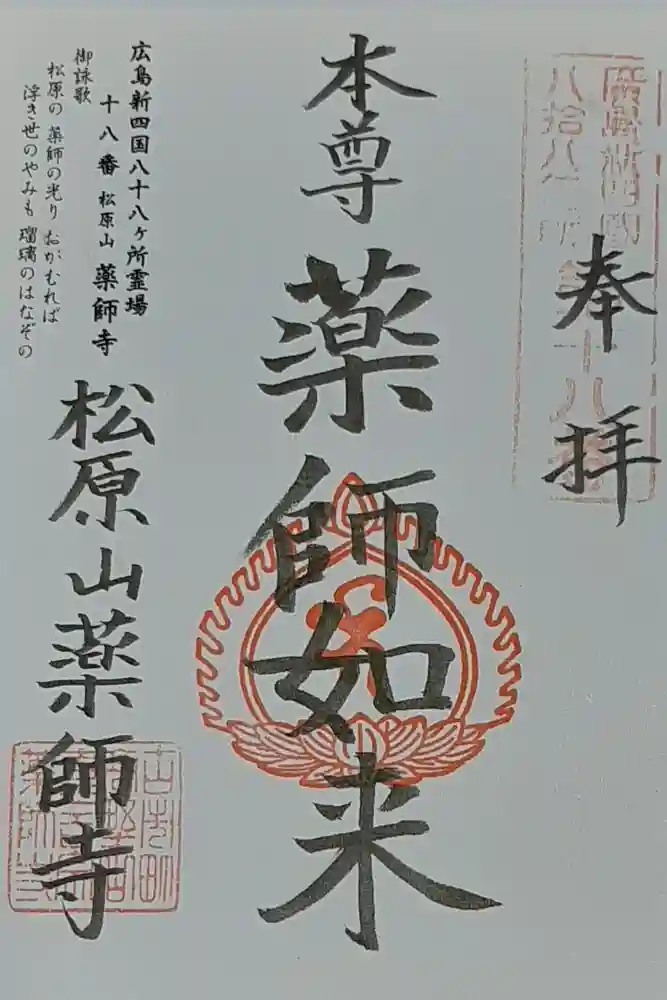 奉拝
本尊 薬師如来
広島新四国八十八ヶ所霊場
十八番 松原山 薬師寺
御詠歌
松原の 薬師の光り おがむれば
浮き世のやみも 瑠璃のはなぞの
松原山薬師寺